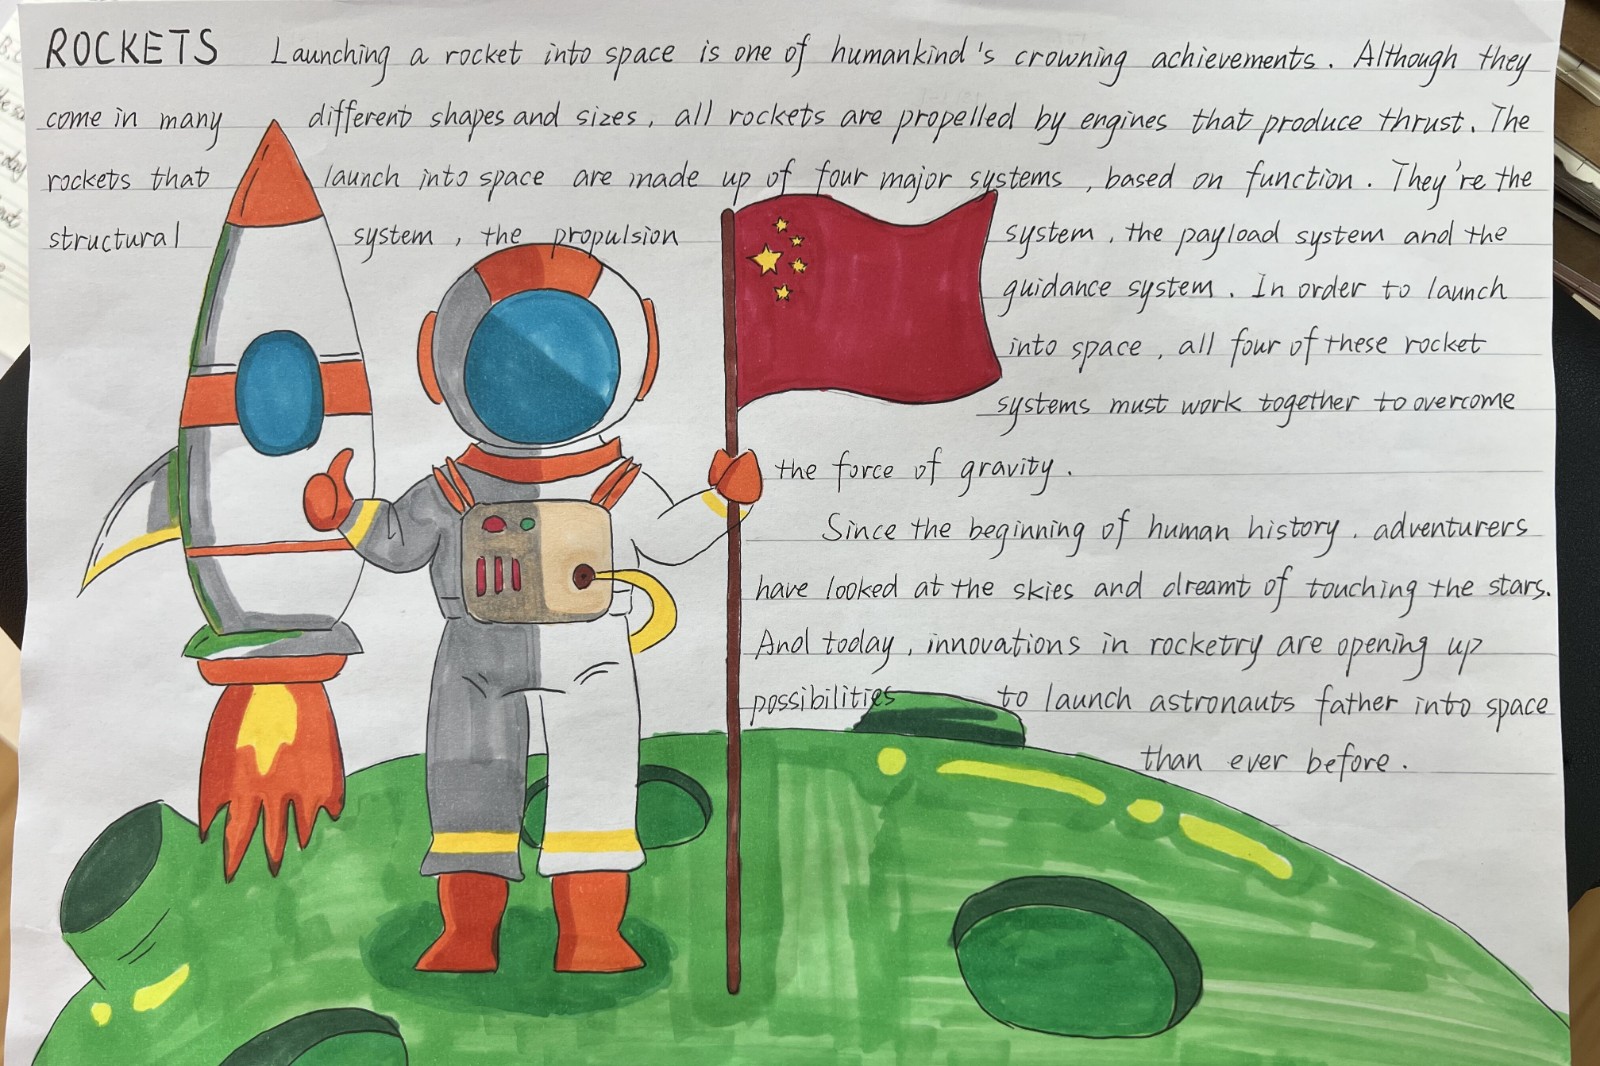 ROCKETS Launching a rocket into space is one of humankind's crowning achievements. Although they
come in many different shapes and sizes, all rockets are propelled by engines that produce thrust. The
rockets that launch into space are made up of four major systems, based on function. They're the
structural system, the propulsion system, the payload system and the
guidance system. In order to launch
into space, all four of these rocket
systems must work together to overcome
the force of gravity.
Since the beginning of human history, adventurers
have looked at the skies and dreamt of touching the stars.
And today, innovations in rocketry are opening up
possibilities to launch astronauts father into space
than ever before.